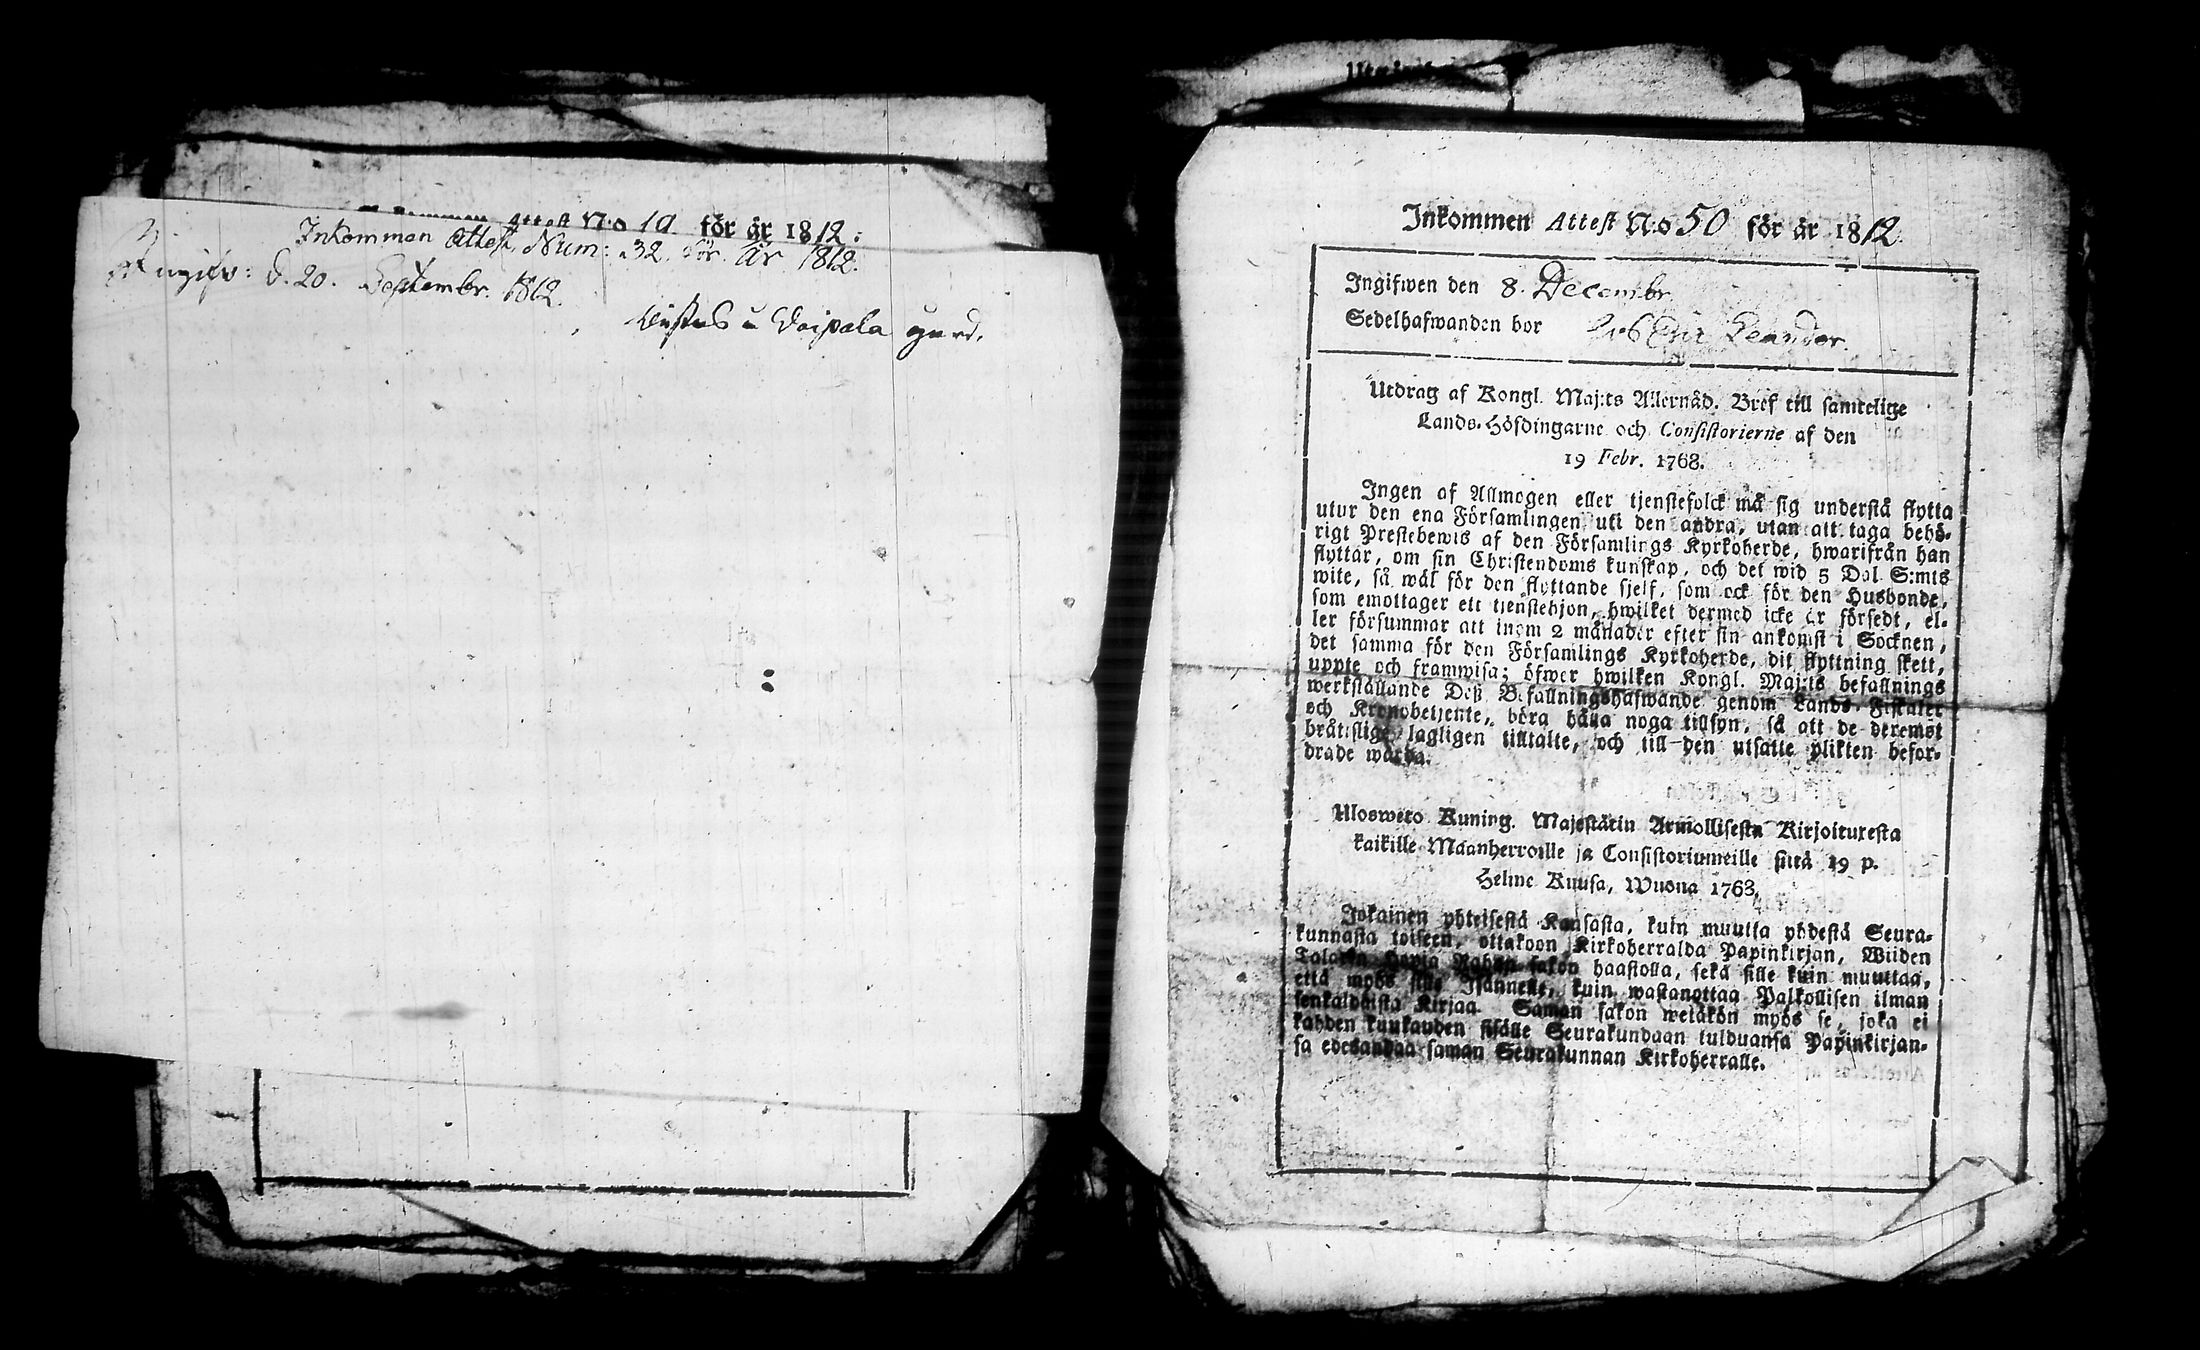 Attest N:o 19 för år 1812:
Inkommen Attest, Num: 32. för År 1812.
ingifv: d. 20. Septembr. 1812.
gård.
Inkommen Attest N:o 50 för år 1812
Ingifwen den 8. Decembr.
Sedelhafwanden bor Leander.
Utdrag af Kongl. Maj:ts Allernåd. Bref till samtelige
Lands-Höfdingarne och Consistorierne af den
19 Febr. 1768.
Ingen af Allmogen eller tjenstefolck må sig understå flytta
utur den ena Församlingen uti den andra, utan att taga behö-
rigt Prestebewis af den Församlings Kyrkoherde, hwarifrån han
flyttar, om sin Christendoms kunskap, och det wid 5 Dal. S:mts
wite, så wäl för den flyttande sjelf, som ock för den Husbonde,
som emottager ett tjenstehjon, hwilket dermed icke är försedt, el-
ler försummar att inom 2 månader efter sin ankomst i Socknen,
det samma för den Församlings Kyrkoherde, dit flyttning skett,
uppte och framwisa; öfwer hwilken Kongl. Maj:ts befallnings
werkställande Deß Befallningshafwande genom Lands-Fiskaler
och Kronobetjente, böra hålla noga tillsyn, så att de deremot
bråttslige lagligen tilltalte, och till den utsatte plikten befor-
drade warda.
Uloswеto Kuning. Majestätin Armollisesta Kirjoituxesta
kaikille Maanherroille ja Consistoriumeille siitä 19 p.
Helme Kuusa, Wuona 1763.
Jokainen yhteisestä Kansasta, kuin muutta yhdestä Seura-
kunnasta toiseen, ottakoon Kirkoherralda Papinkirjan, Wiiden
Talarin Hopia Rahan sakon haastolla, sekä sille kuin muuttaa,
että myös sille Isännelle, kuin wastanottaa Palkollisen ilman
senkaldaista Kirjaa. Saman sakon wetäkön myös se, joka ei
kahden kuukauden sisälle Seurakundaan tulduansa Papinkirjan-
sa edesandaa saman Seurakunnan Kirkoherralle.